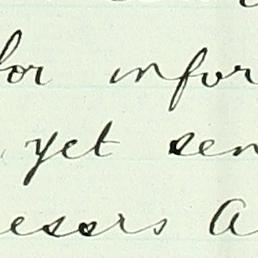 for infor
yet sen
esors a